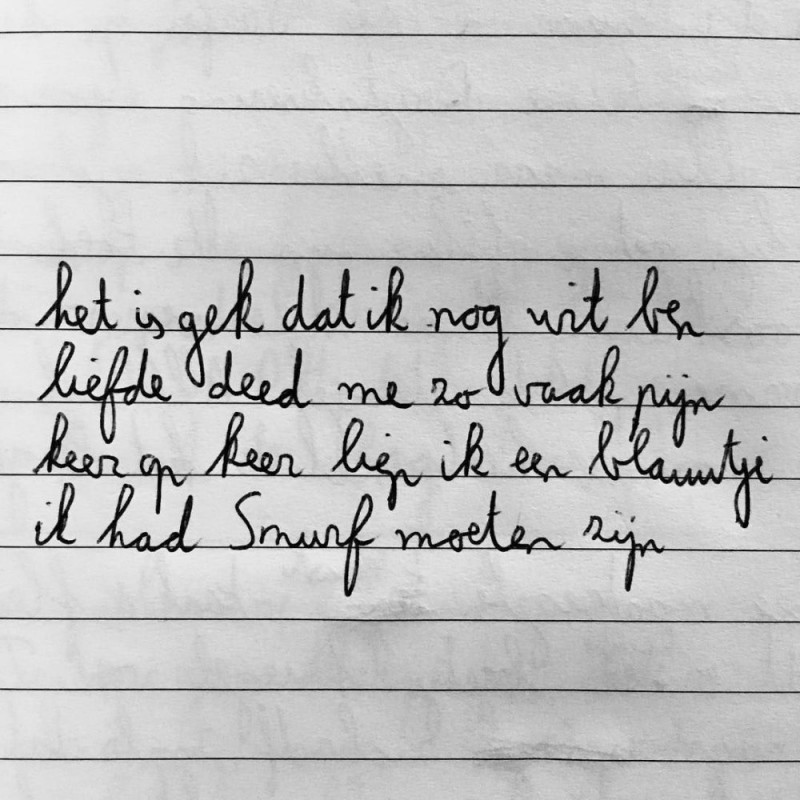 het is gek dat ik nog wit ben
liefde deed me zo vaak pijn
keer op keer liep ik een blauwtje
ik had Smurf moeten zijn